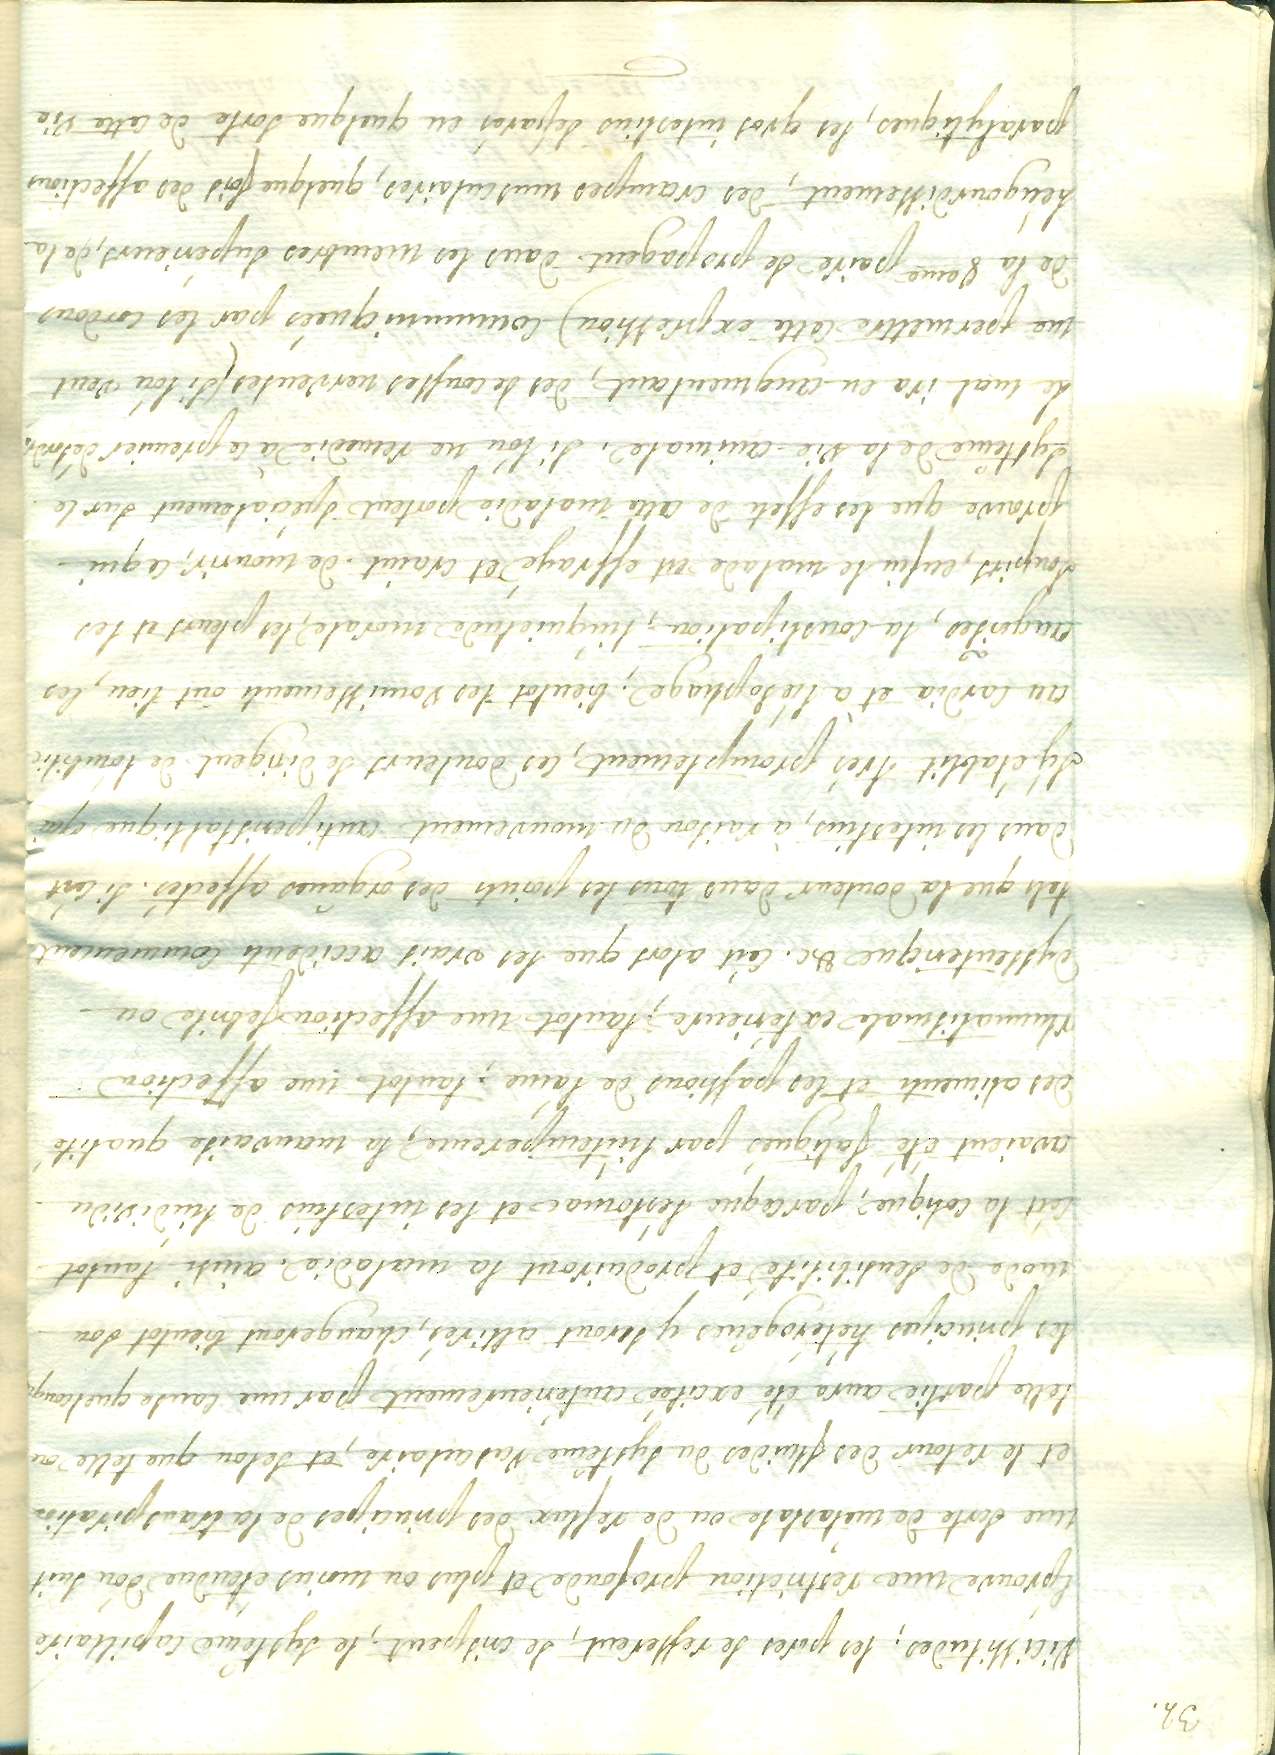 32.
Vicissitudes, les pores se resserent, se crispent, le système capillaire
éprouve une restriction profonde et plus ou moins etendue d'ou suit
une sorte de métastase ou de reflux des principes de la transpiration
et le retour des fluides du système vasculaire, et selon que telle ou
telle partie aura été excitée antérieurement par une cause quelconque
les principes hétérogènes y seront attirés, changeront bientot son
mode de sensibilité et produiront la maladie. ainsi tantot
c'est la colique, parceque l'estomac et les intestins de l'individu
avaient été fatigués par l'intemperence, la mauvaise qualité
des aliments et les passions de l'ame; tantot une affection
rhumatismale extérieure; tantot une affection febrile ou
dyssenterique &c. c'est alors que les vrais accidents commencent
tels que la douleur dans tous les points des organes affectés. si c'est
dans les intestins, à raison du mouvement antiperistaltique qui
s'y établit très promptement, les douleurs se dirigent de l'ombilic
au cardia et a l'ésophage; bientot les vomissements ont lieu, les
angoises, la constipation, l'inquietude morale, les pleurs et les
soupirs, enfin le malade est effrayé et craint de mourir, ce qui
prouve que les effets de cette maladie portent spécialement sur le
système de la vie animale. si l'on ne remedie à ce premier désordre
le mal ira en augmentant, des secousses nerveuses (si l'on veut
me permettre cette expression) communiquées par les cordons
de la 8eme paire se propagent dans les membres supérieurs, de la
l'engourdissement, des crampes musculaires, quelque fois des affections
paralytiques, les gros intestins séparés en quelque sorte de cette vie